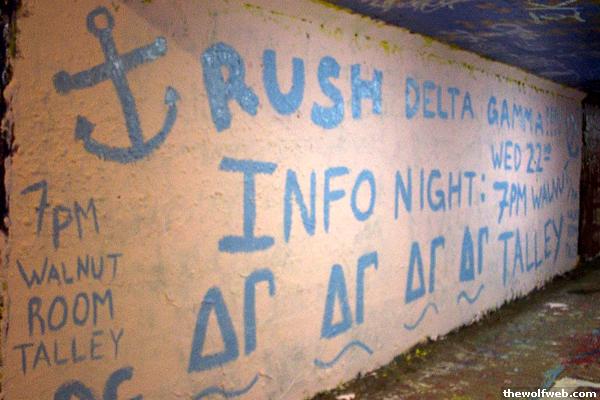 RUSH DELTA GAMMA!!!!
INFO NIGHT:
WED 22nd
7PM WALNUT
TALLEY
7PM
WALNUT
ROOM
TALLEY
ΔΓ ΔΓ ΔΓ ΔΓ
thewolfweb.com